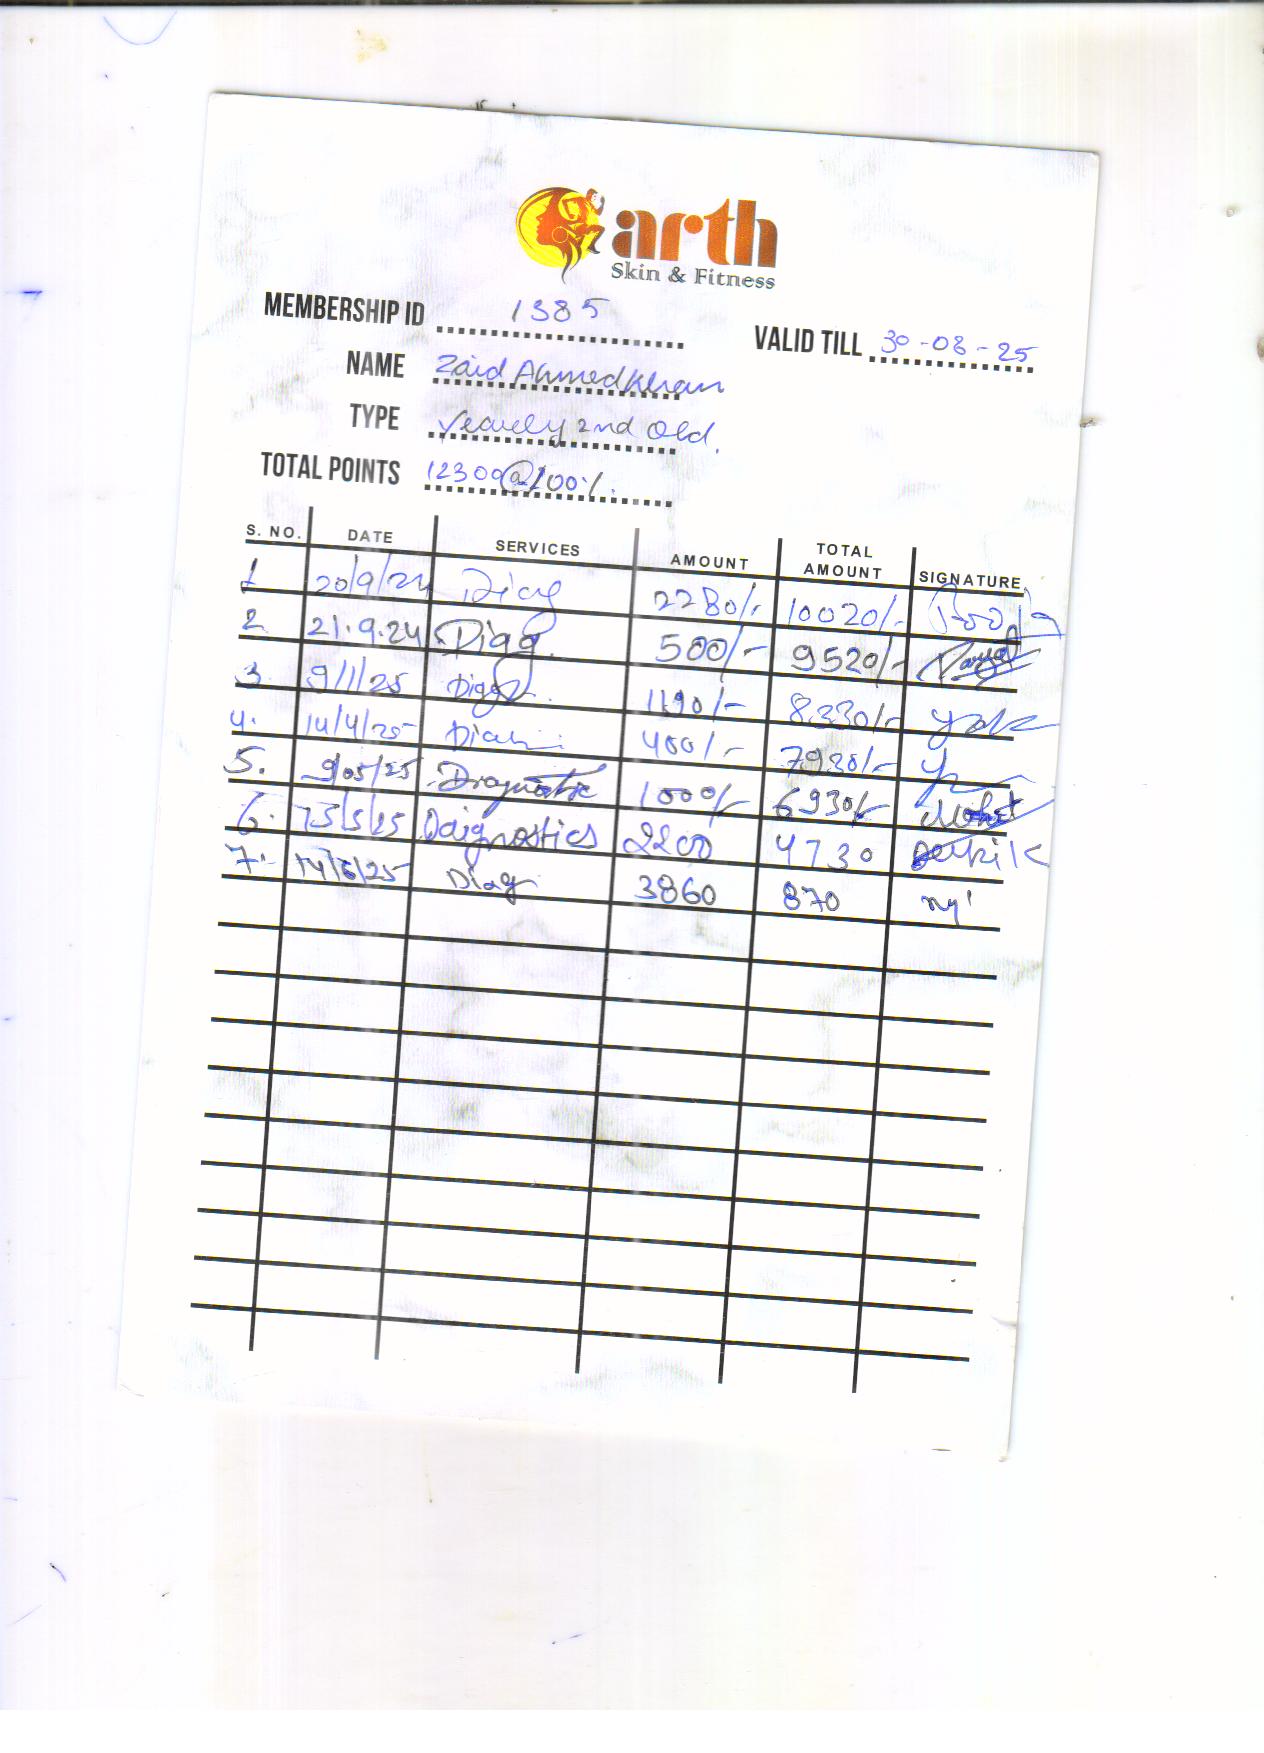 arth
Skin & Fitness
MEMBERSHIP ID 1385
VALID TILL 30-08-25
NAME Zaid Ahmed Khan
TYPE Yearly 2nd Old.
TOTAL POINTS 12300@100%.
S. NO. DATE SERVICES AMOUNT TOTAL AMOUNT SIGNATURE
1 20/9/24 Diag 2280/- 10020/- Pooja
2 21.9.24 Diag. 500/- 9520/-
3. 9/1/25 Diag. 1190/- 8330/-
4. 14/4/25 400/- 7930/-
5. 9/05/25 Diagnostic 1000/- 6930/- Mohit
6. 13/5/25 Daignostics 2200 4730
7. 14/6/25 Diag 3860 870